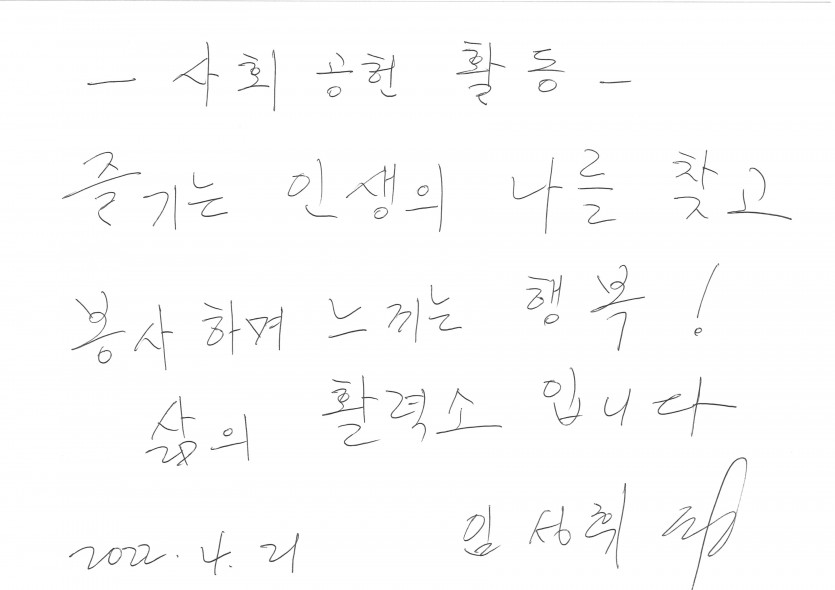 - 사회 공헌 활동 -
즐기는 인생의 나를 찾고
봉사하며 느끼는 행복!
삶의 활력소 입니다
2022. 4. 21 임성휘